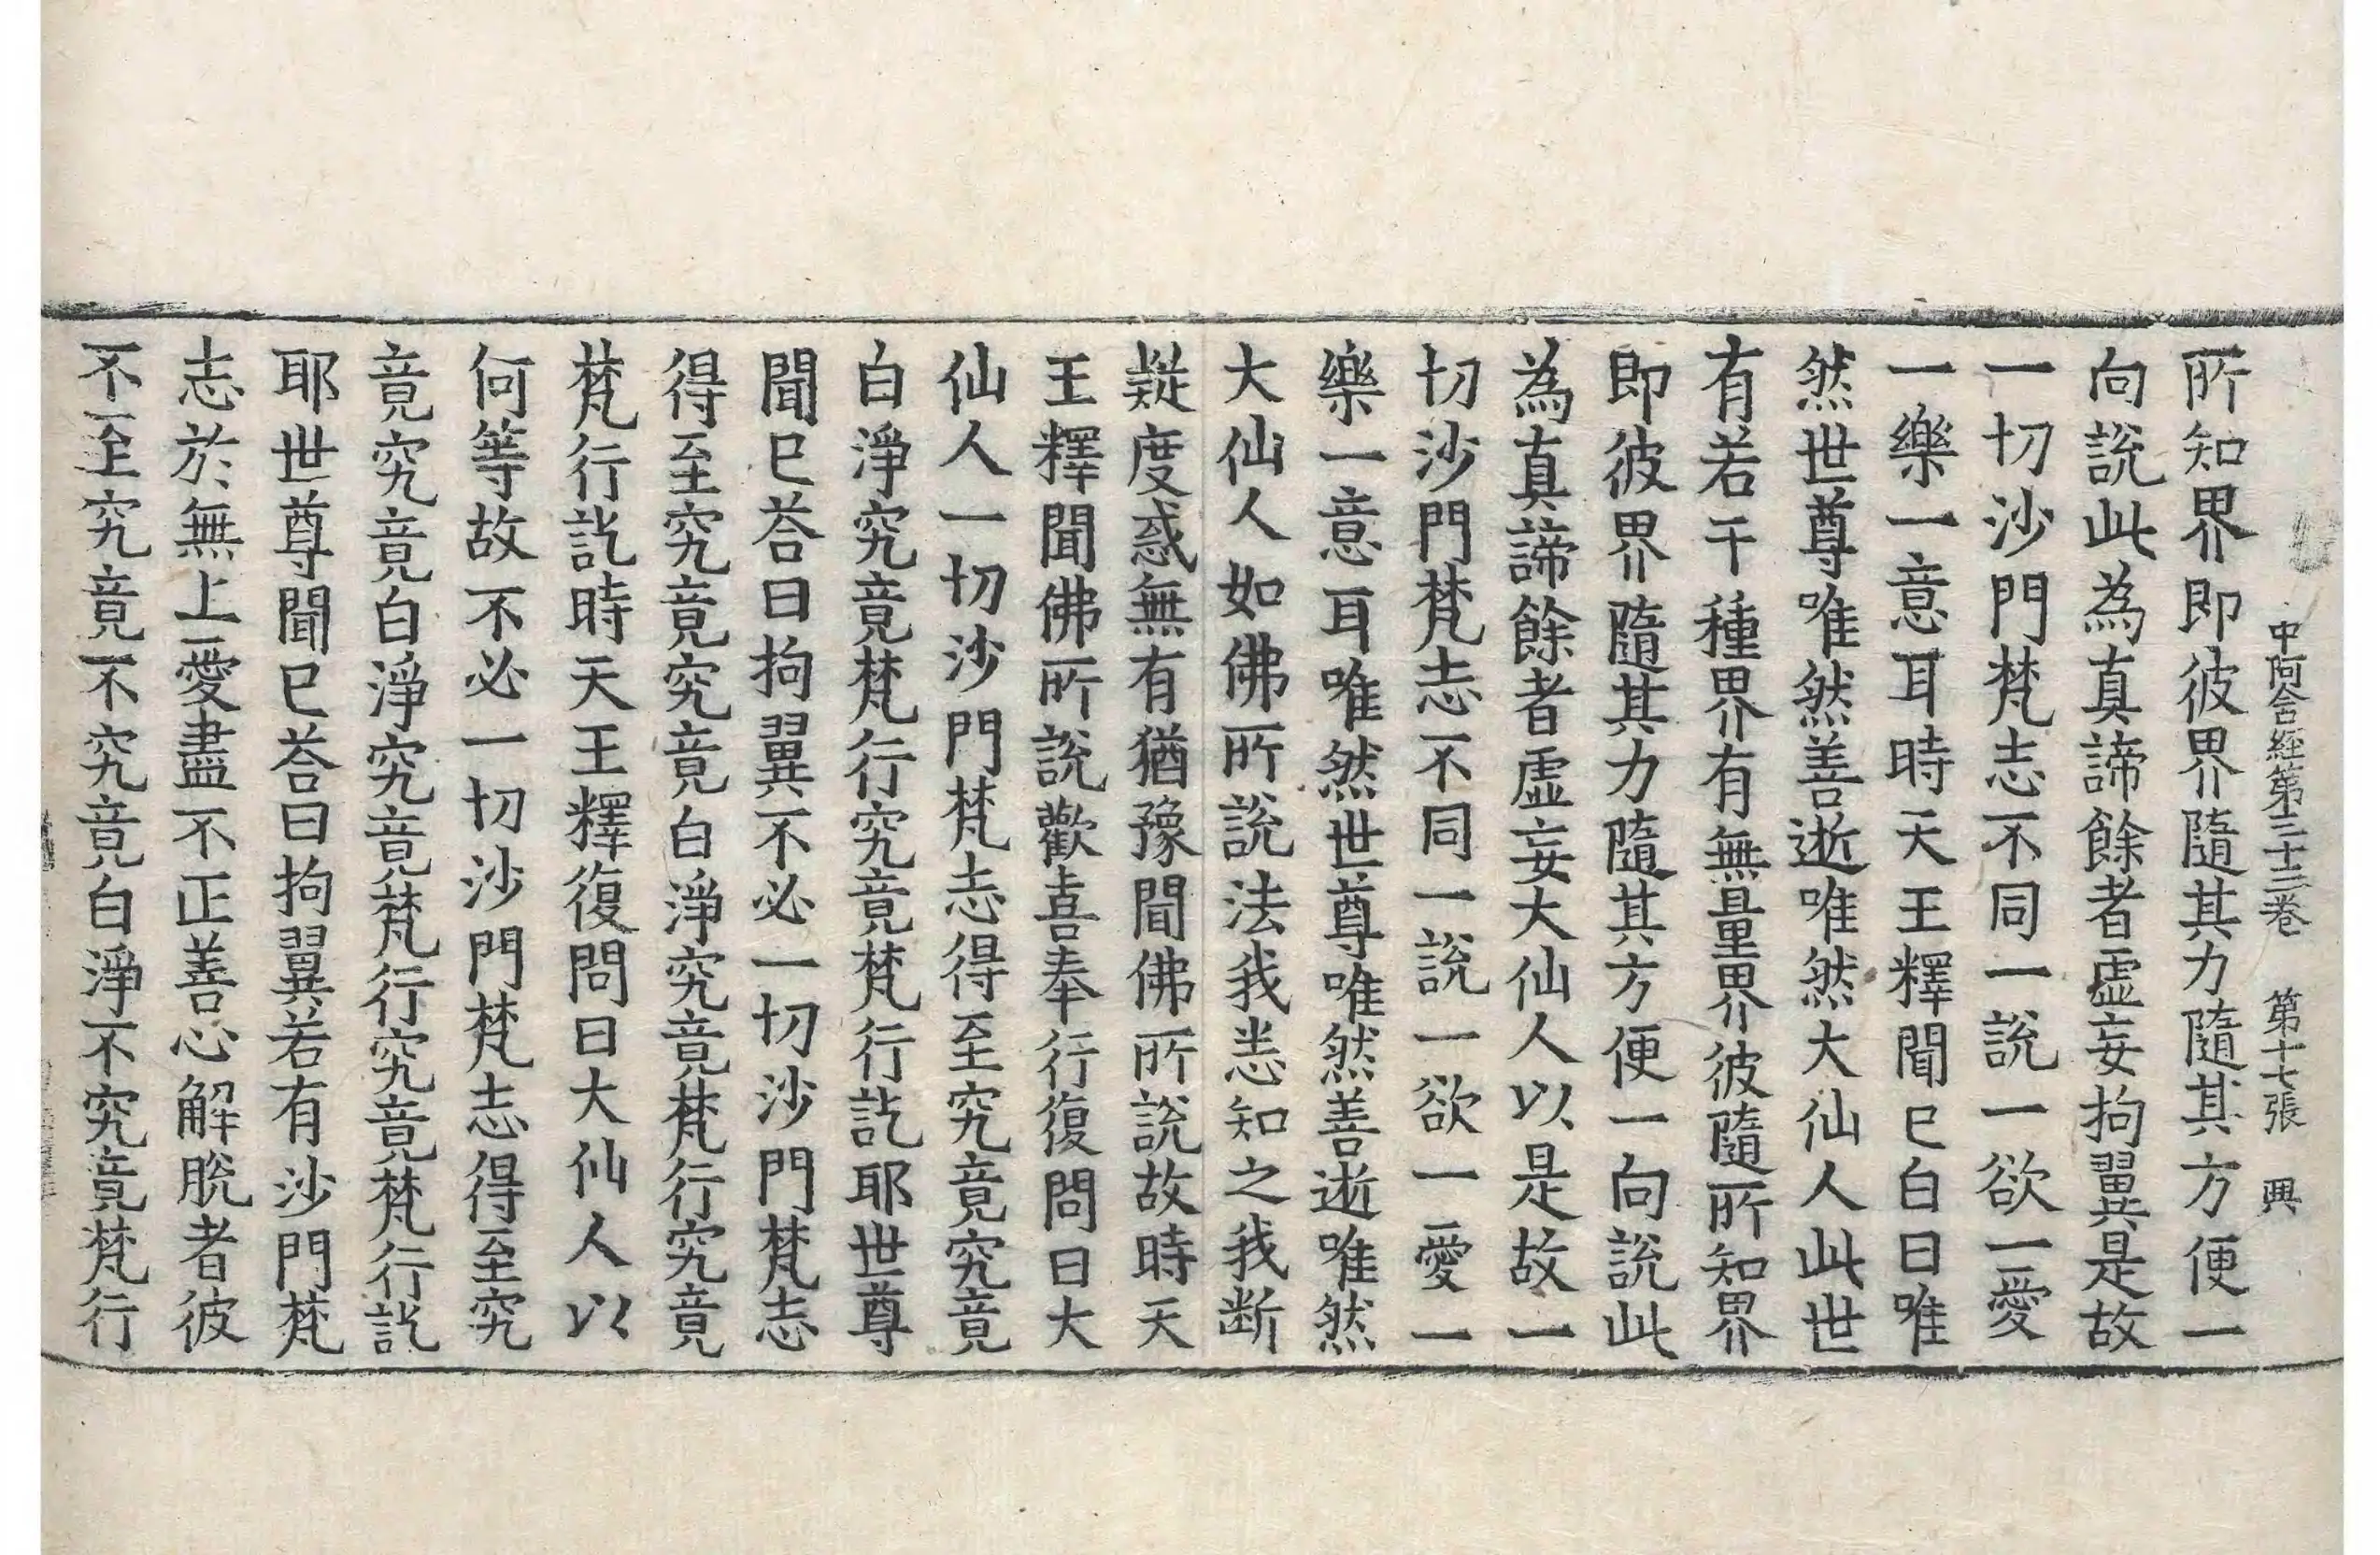 中阿含経第三十三卷 第十七張 興
所知界即彼界隨其力隨其方便一
向說此為真諦餘者虛妄拘翼是故
一切沙門梵志不同一說一欲一愛
一樂一意耳時天王釋聞已白曰唯
然世尊唯然善逝唯然大仙人此世
有若干種界有無量界彼隨所知界
即彼界隨其力隨其方便一向說此
為真諦餘者虛妄大仙人以是故一
切沙門梵志不同一說一欲一愛一
樂一意耳唯然世尊唯然善逝唯然
大仙人如佛所說法我悉知之我断
疑度惑無有猶豫聞佛所說故時天
王釋聞佛所說歡喜奉行復問曰大
仙人一切沙門梵志得至究竟究竟
白淨究竟梵行究竟梵行訖耶世尊
聞已荅曰拘翼不必一切沙門梵志
得至究竟究竟白淨究竟梵行究竟
梵行訖時天王釋復問曰大仙人以
何等故不必一切沙門梵志得至究
竟究竟白淨究竟梵行究竟梵行訖
耶世尊聞已荅曰拘翼若有沙門梵
志於無上愛盡不正善心解脫者彼
不至究竟不究竟白淨不究竟梵行